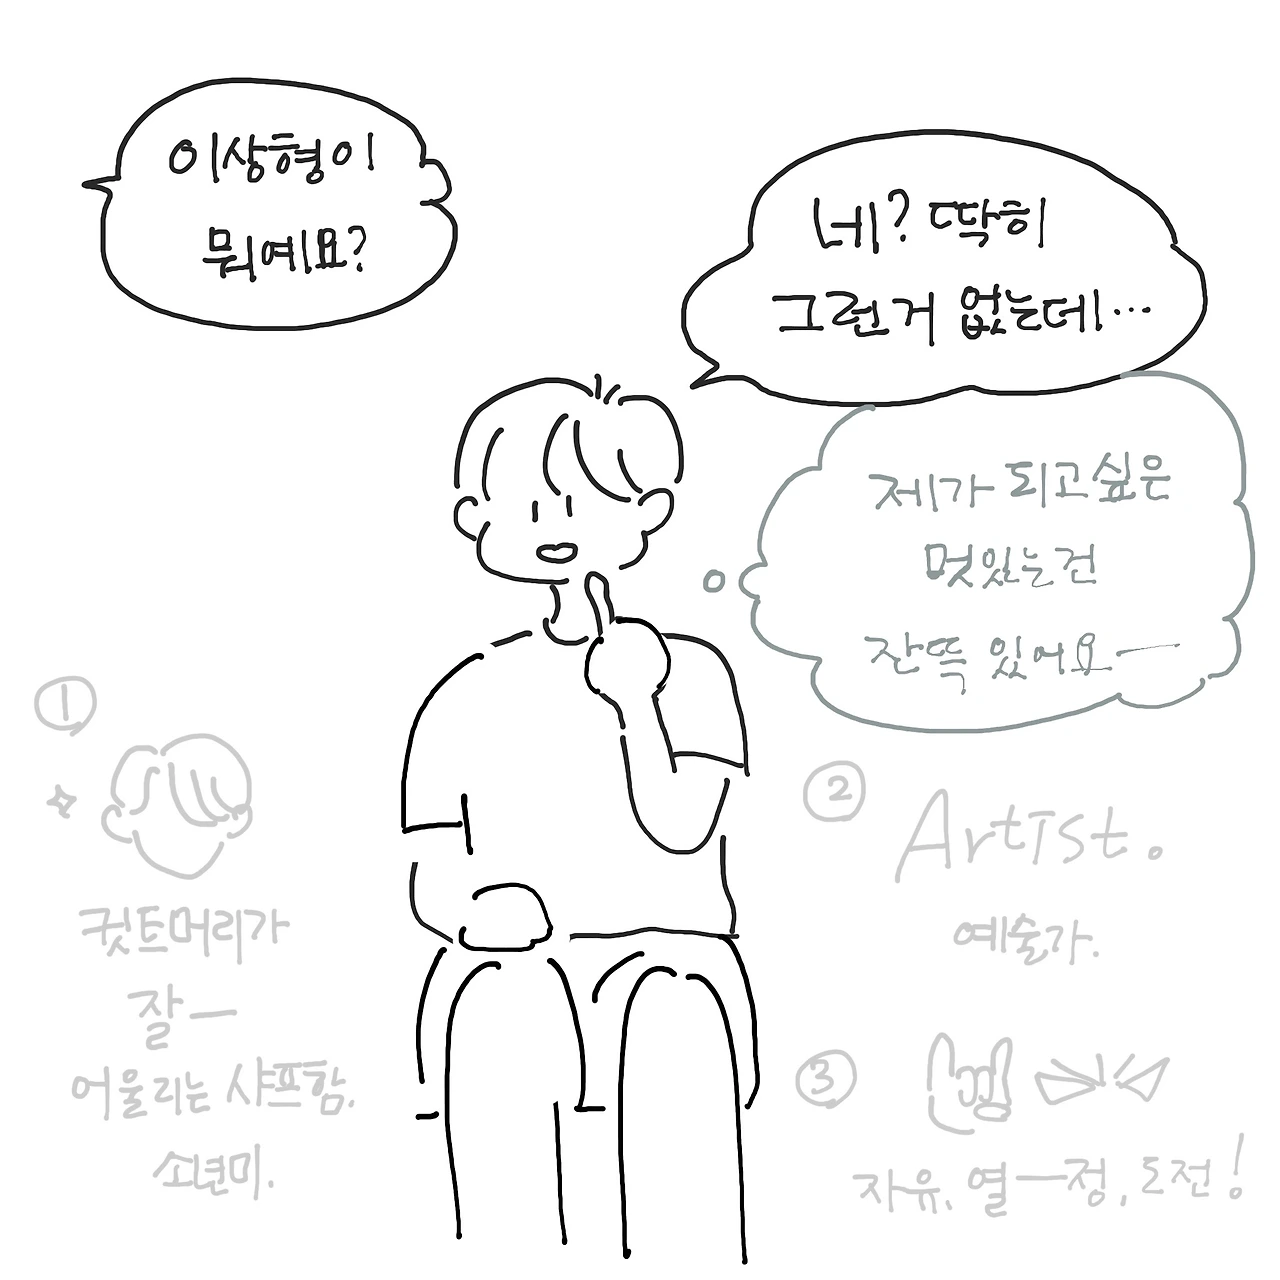 이상형이
뭐예요?
네? 딱히
그런거 없는데...
제가 되고싶은
멋있는건
잔뜩 있어요ㅡ
①
컷트머리가
잘ㅡ
어울리는 샤프함.
소년미.
②
Artist.
예술가.
③
자유, 열ㅡ정, 도전!